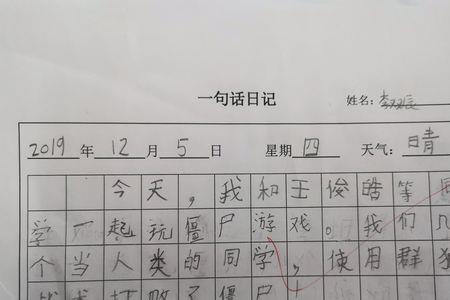 一句话日记
姓名：李
2019年12月5日 星期四 天气：晴
今天，我和王俊皓等同
学一起玩僵尸游戏。我们几
个当人类的同学，使用群
打败了僵尸